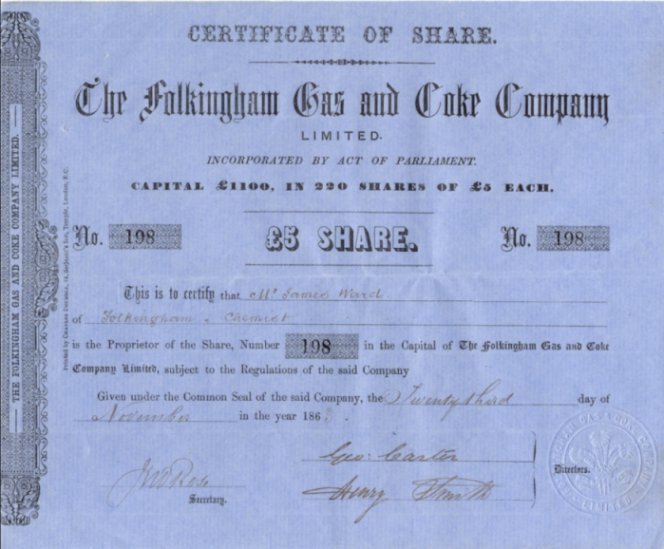 CERTIFICATE OF SHARE.
The Folkingham Gas and Coke Company
LIMITED.
INCORPORATED BY ACT OF PARLIAMENT.
CAPITAL £1100, IN 220 SHARES OF £5 EACH.
No. 198
£5 SHARE.
No. 198
This is to certify that Mr James Ward
of Folkingham Chemist
is the Proprietor of the Share, Number 198 in the Capital of The Folkingham Gas and Coke
Company Limited, subject to the Regulations of the said Company
Given under the Common Seal of the said Company, the Twenty third day of
November in the year 186
Geo: Carter
Henry Smith
Secretary.
Directors.
THE FOLKINGHAM GAS AND COKE COMPANY LIMITED.